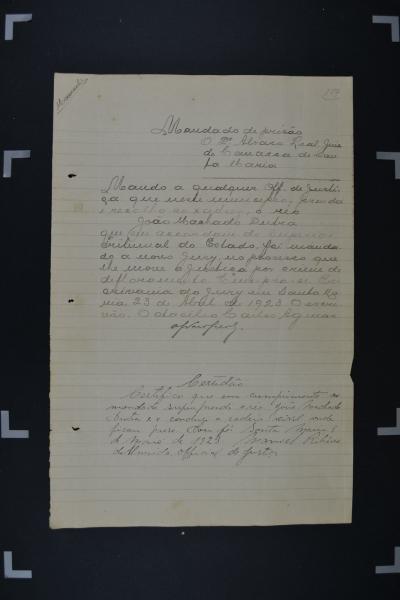 Mandado de prisão
O Dr Alvaro Leal, Juiz
da Comarca de San
ta Maria
Mando a qualquer Off. de Justi
ça que neste municipio, prenda
e recolha ao xadrez, o réo
João Machado Dutra
que em accordam do Superior
Tribunal do Estado, foi manda
do a novo Jury, no processo que
lhe move a Justiça por crime de
defloramento. Cumpra-se. Es
crivania do Jury em Santa Ma
ria, 23 de Abril de 1923. O escri
vão,
Certidão
Certifico que em cumprimento ao
mandado supra prendi o réo João Machado
Dutra e o conduzi a cadeia civil onde
ficou preso. Dou fé. Santa Maria
de Maio de 1923. Manoel Ribeiro
de Almeida official de justiça